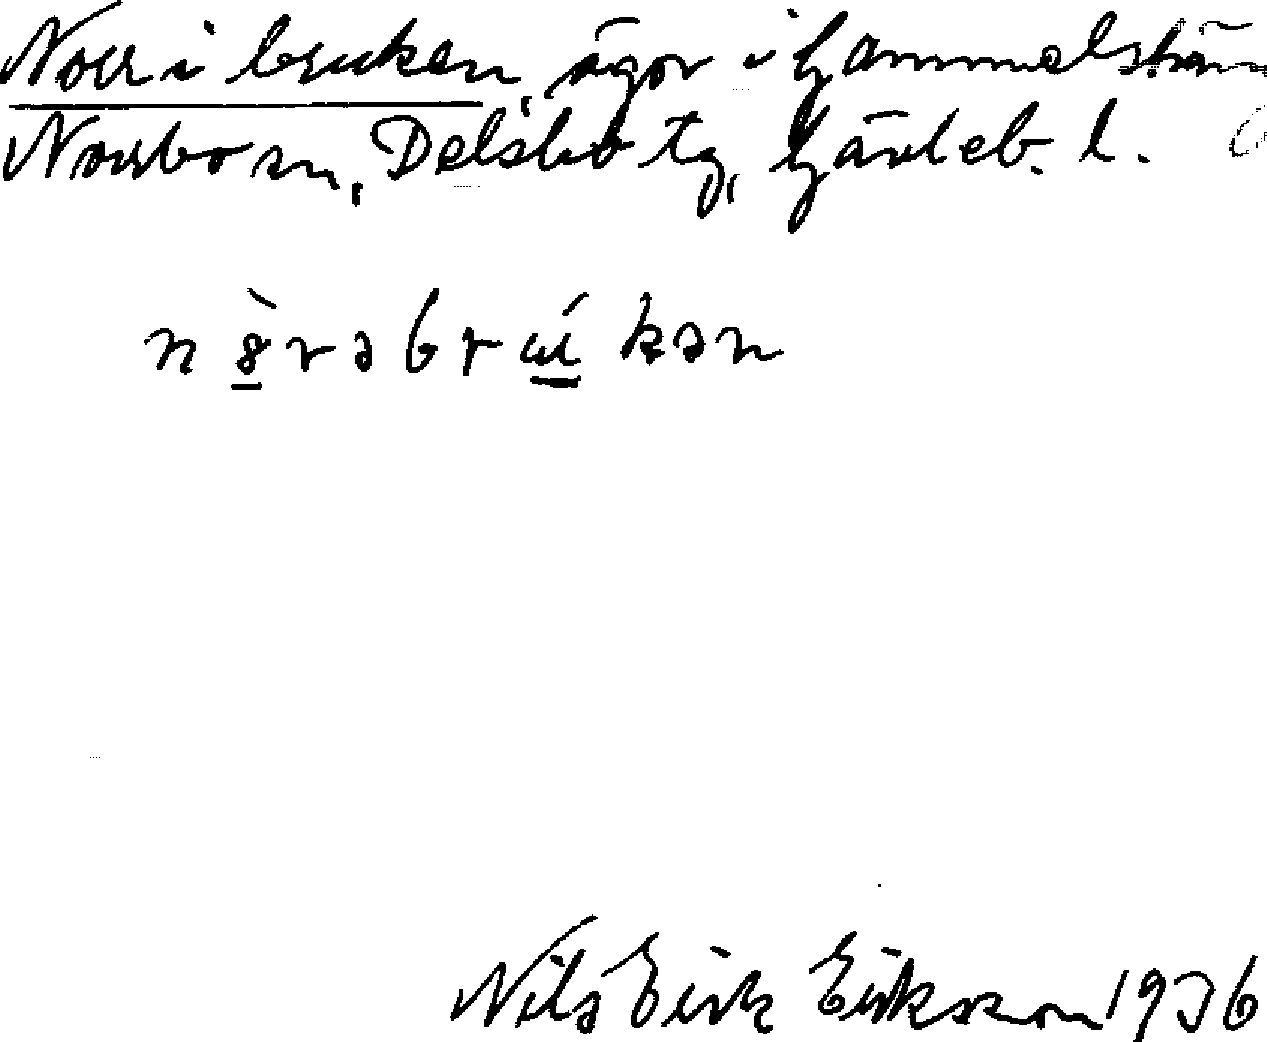 Norr i bruken, ägor i Gammelsträn
Norrbo sn, Delsbo tg, Gävleb. l.
nö̀rəbrʉ́kən
Nils Eirik Eriksson 1936